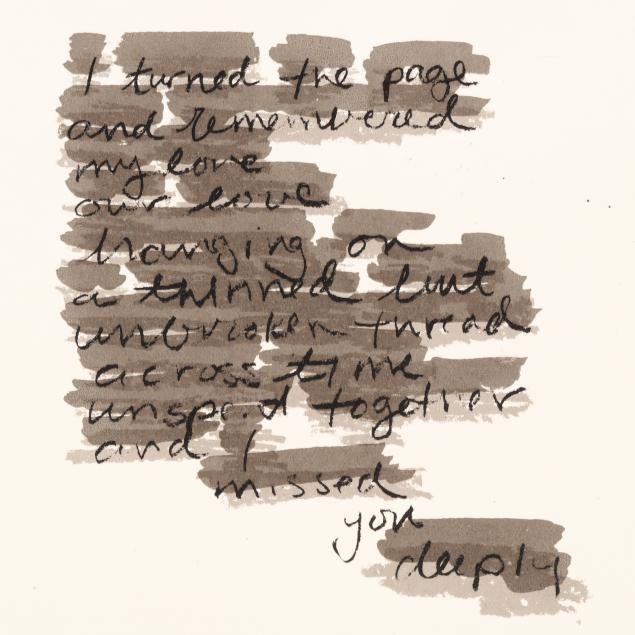 I turned the page
and remembered
my love
our love
hanging on
a thinned but
unbroken thread
across time
unspent together
and I
missed
you
deeply